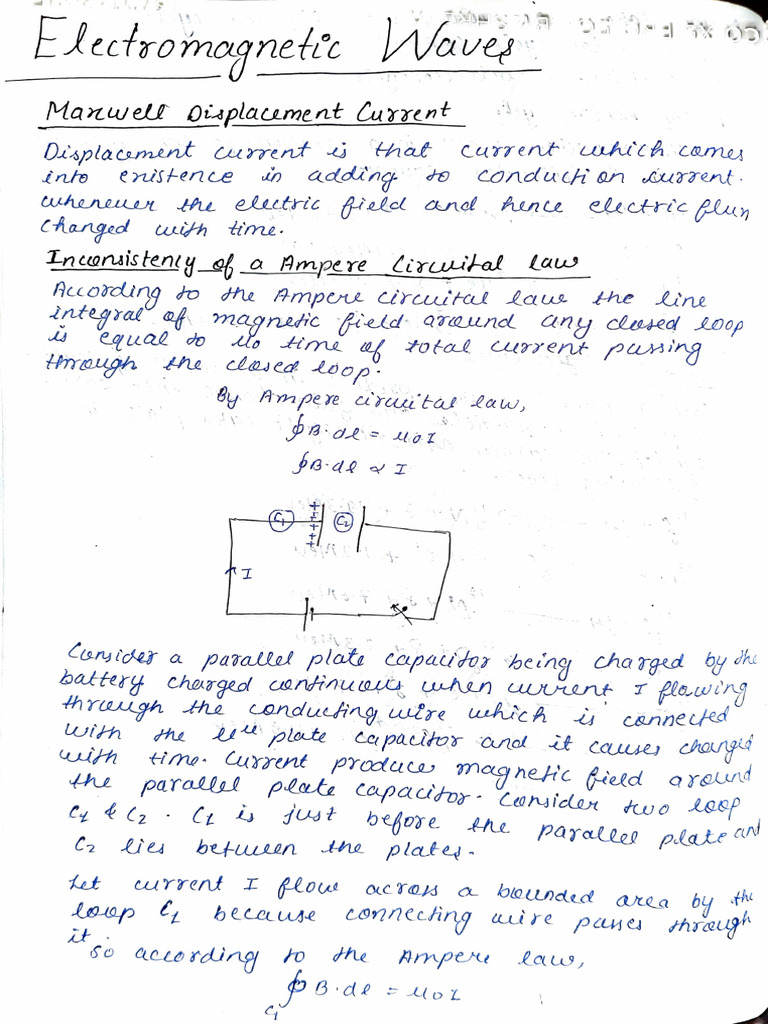 Electromagnetic Waves
Maxwell Displacement Current
Displacement current is that current which comes
into existence in adding to conduction current.
whenever the electric field and hence electric flux
changed with time.
Inconsistency of a Ampere Circuital law
According to the Ampere circuital law the line
integral of magnetic field around any closed loop
is equal to μ0 time of total current passing
through the closed loop.
By Ampere circuital law,
∮B·dl = μ0I
∮B·dl ∝ I
C1 ++++++ C2
I
Consider a parallel plate capacitor being charged by the
battery charged continuous when current I flowing
through the conducting wire which is connected
with the llel plate capacitor and it causes changed
with time. Current produce magnetic field around
the parallel plate capacitor. Consider two loop
C1 & C2. C1 is just before the parallel plate and
C2 lies between the plates.
Let current I flow across a bounded area by the
loop C1 because connecting wire passes through
it
so according to the Ampere law,
∮B·dl = μ0I
C1